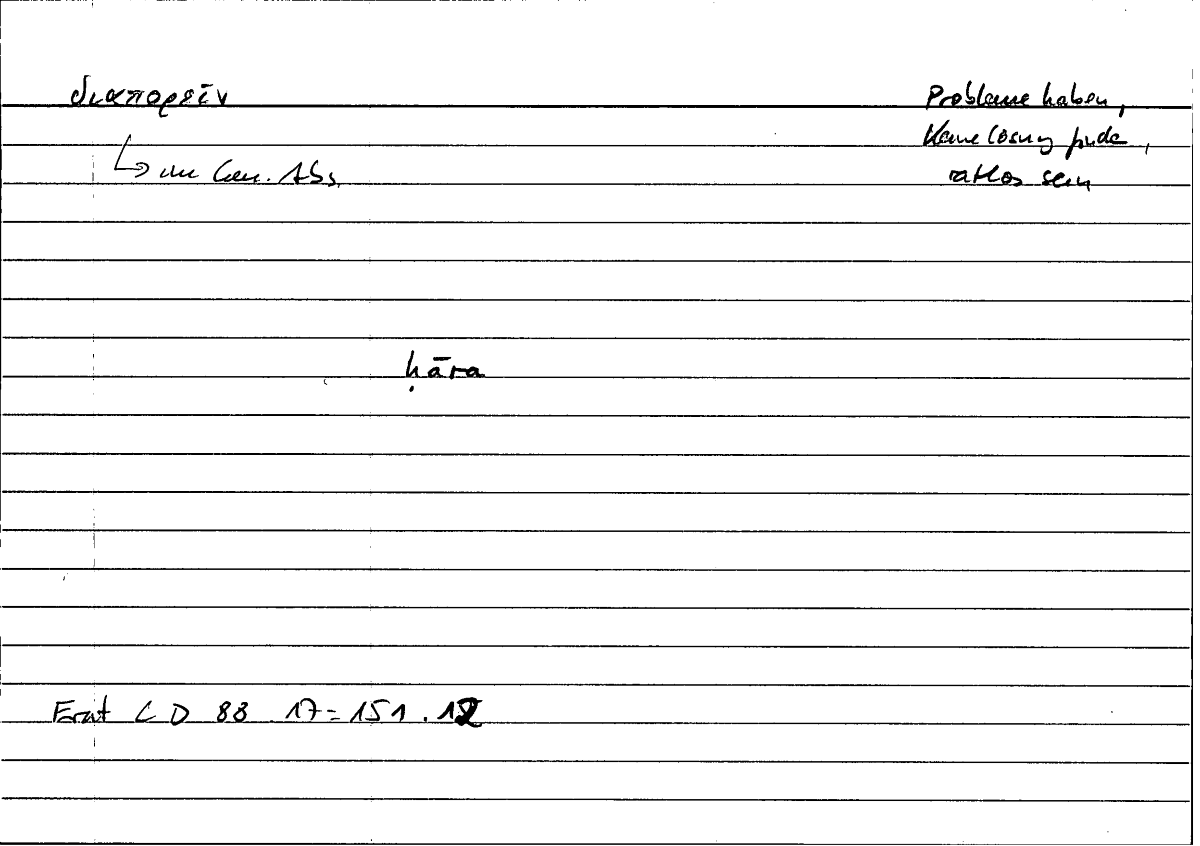 διαπορεῖν
Probleme haben,
keine Lösung finde,
↳ im Gen. Abs.
ratlos sein
ḥāra
Erat CD 88 17=151.12